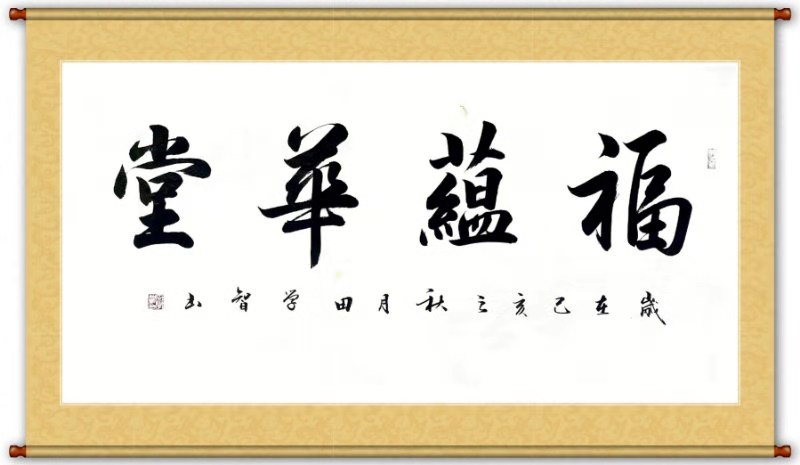 福蘊華堂
歲在己亥之秋月田学智书